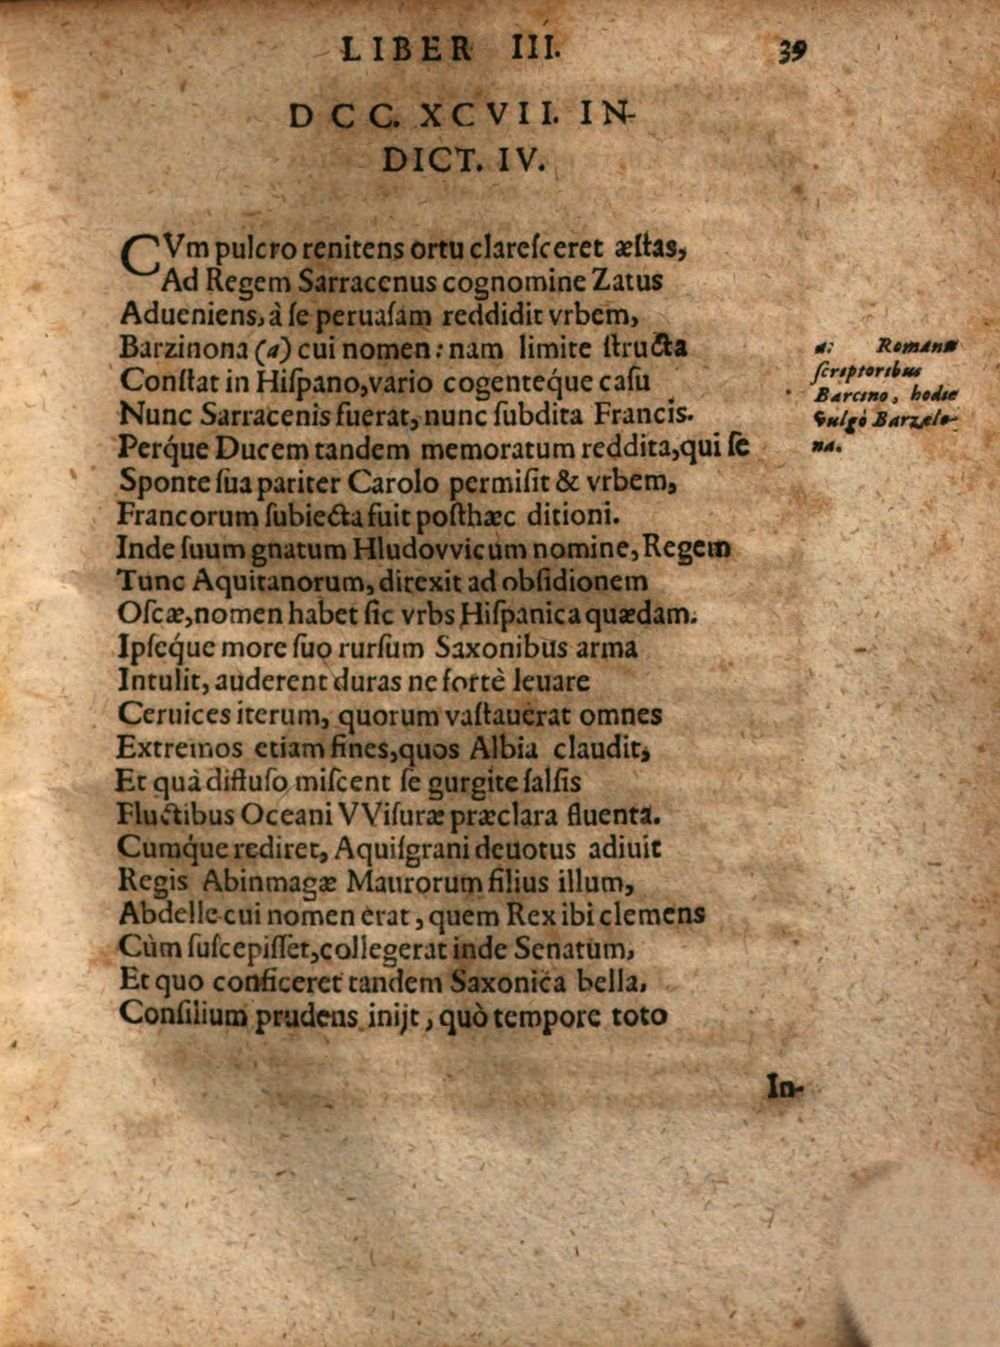 LIBER III. 39
DCC. XCVII. IN-
DICT. IV.
CVm pulcro renitens ortu clareſceret æſtas,
Ad Regem Sarracenus cognomine Zatus
Adueniens, à ſe peruaſam reddidit vrbem,
Barzinona (a) cui nomen: nam limite ſtructa
Conſtat in Hiſpano, vario cogenteq́ue caſu
Nunc Sarracenis fuerat, nunc ſubdita Francis.
Perq́ue Ducem tandem memoratum reddita, qui ſe
Sponte ſua pariter Carolo permiſit & vrbem,
Francorum ſubiecta fuit poſthæc ditioni.
Inde ſuum gnatum Hludovvicum nomine, Regem
Tunc Aquitanorum, direxit ad obſidionem
Oſcæ, nomen habet ſic vrbs Hiſpanica quædam.
Ipſeq́ue more ſuo rurſum Saxonibus arma
Intulit, auderent duras ne fortè leuare
Ceruices iterum, quorum vaſtauerat omnes
Extremos etiam fines, quos Albia claudit,
Et quà diffuſo miſcent ſe gurgite ſalſis
Fluctibus Oceani VViſuræ præclara fluenta.
Cumq́ue rediret, Aquiſgrani deuotus adiuit
Regis Abinmagæ Maurorum filius illum,
Abdelle cui nomen erat, quem Rex ibi clemens
Cùm ſuſcepiſſet, collegerat inde Senatum,
Et quo conficeret tandem Saxonica bella,
Conſilium prudens inijt, quò tempore toto
In-
a: Romanis
ſcriptoribus
Barcino, hodie
vulgò Barzelo-
na.